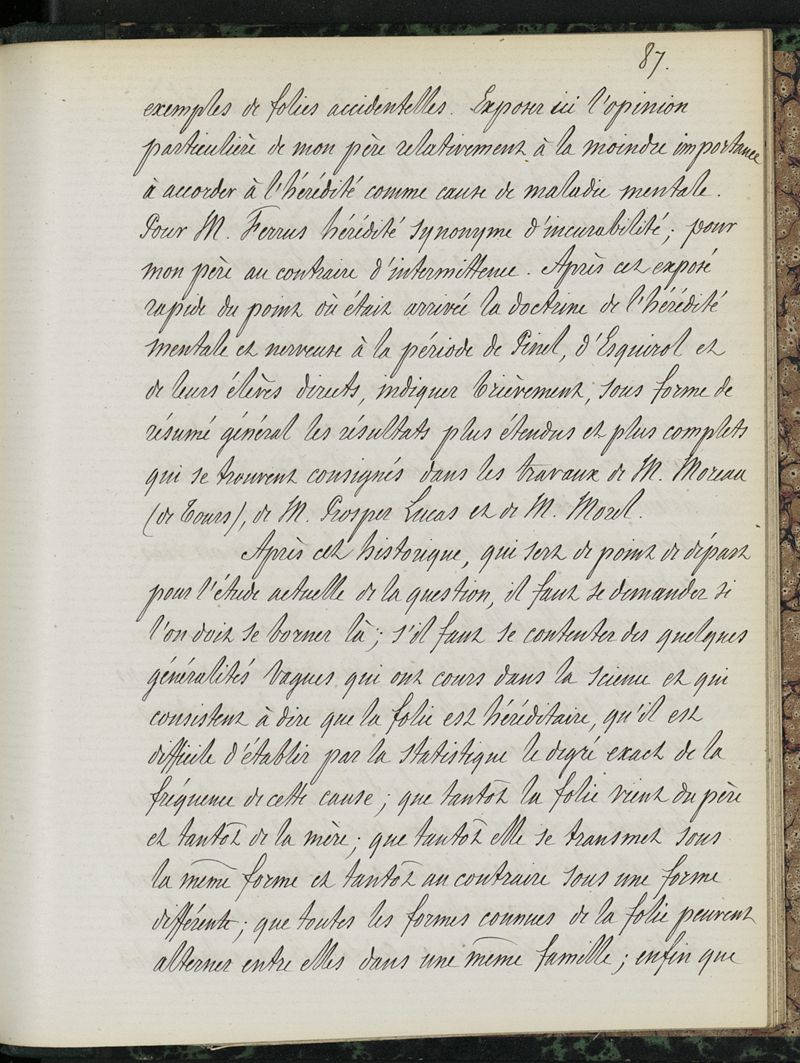 87.
exemples de folies accidentelles. Exposer ici l'opinion
particulière de mon père relativement à la moindre importance
à accorder à l'hérédité comme cause de maladie mentale.
Pour M. Ferrus hérédité synonyme d'incurabilité; pour
mon père au contraire d'intermittence. Après cet exposé
rapide du point où était arrivée la doctrine de l'hérédité
mentale et nerveuse à la période de Pinel, d'Esquirol et
de leurs élèves directs, indiquer brièvement, sous forme de
résumé général les résultats plus étendus et plus complets
qui se trouvent consignés dans les travaux de M. Moreau
(de Tours), de M. Prosper Lucas et de M. Morel.
Après cet historique, qui sert de point de départ
pour l'étude actuelle de la question, il faut se demander si
l'on doit se borner là; s'il faut se contenter des quelques
généralités vagues qui ont cours dans la science et qui
consistent à dire que la folie est héréditaire, qu'il est
difficile d'établir par la statistique le degré exact de la
fréquence de cette cause; que tantôt la folie vient du père
et tantôt de la mère; que tantôt elle se transmet sous
la même forme et tantôt au contraire sous une forme
différente; que toutes les formes connues de la folie peuvent
alterner entre elles dans une même famille; enfin que